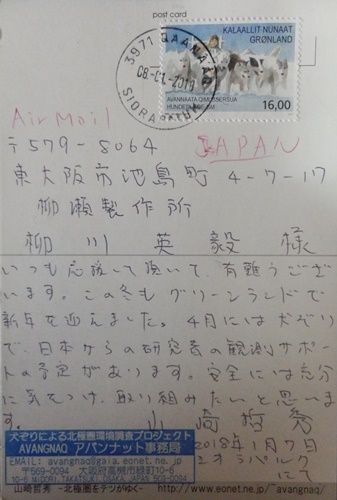 post card
KALAALLIT NUNAAT
GRØNLAND
AVANNAATA QIMUSSERSUA
16,00
3971 QAANAAQ
08-01-2018
SIORAPALUK
Air Mail
JAPAN
〒579-8064
東大阪市池島町 4-7-17
柳瀬製作所
柳川 英毅 様
いつも応援して頂いて、有難うござい
ます。この冬もグリーンランドで
新年を迎えました。4月には犬ぞり
で、日本からの研究者の観測サポー
トの予定があります。安全には充分
に気をつけ、取り組みたいと思いま
す。 山崎哲秀
2018年1月7日
シオラパルク
にて
犬ぞりによる北極圏環境調査プロジェクト
AVANGNAQ アバンナット事務局
EMAIL: avangnaq@gaia.eonet.ne.jp
〒569-0094 大阪府高槻市緑町10-6
山崎哲秀 -北極圏をテツがゆく- http://www.eonet.ne.jp/~avangnaq/